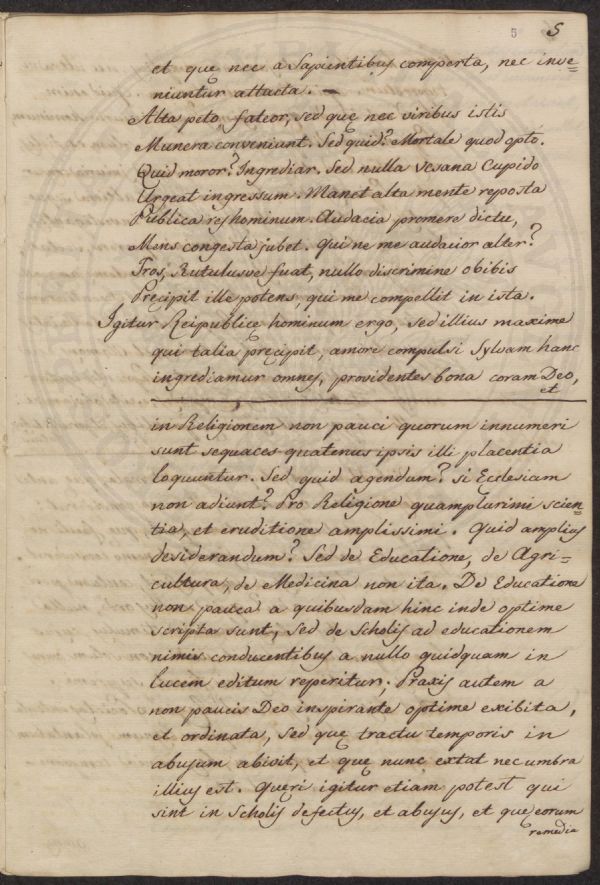 5 5
et quę nec a Sapientibus comperta, nec inve=
niuntur attacta. —
Alta peto, fateor, sed quę nec viribus istis
Munera conveniant. Sed quid? Mortale quod opto.
Quid moror? Ingrediar. Sed nulla vesana Cupido
Urgeat ingressum. Manet alta mente reposta
Publica res hominum. Audacia promere dictu,
Mens congesta jubet. Qui ne me audacior alter?
Tros, Rutulusve fuat, nullo discrimine obibis
Pręcipit ille potens, qui me compellit in ista.
Igitur Reipublicę hominum ergo, sed illius maxime
qui talia pręcipit, amore compulsi Sylvam hanc
ingrediamur omnes, providentes bona coram Deo,
et
in Religionem non pauci quorum innumeri
sunt sequaces quatenus ipsis illi placentia
loquuntur. Sed quid agendum? si Ecclesiam
non adiunt? Pro Religione quamplurimi scien=
tia, et eruditione amplissimi. Quid amplius
desiderandum? Sed de Educatione, de Agri=
cultura, de Medicina non ita. De Educatione
non pauca a quibusdam hinc inde optime
scripta sunt, sed de Scholis ad educationem
nimis conducentibus a nullo quidquam in
lucem editum reperitur. Praxis autem a
non paucis Deo inspirante optime exibita,
et ordinata, sed quę tractu temporis in
abusum abivit, et quę nunc extat nec umbra
illius est. Quęri igitur etiam potest qui
sint in Scholis defectus, et abusus, et quę eorum
remedia